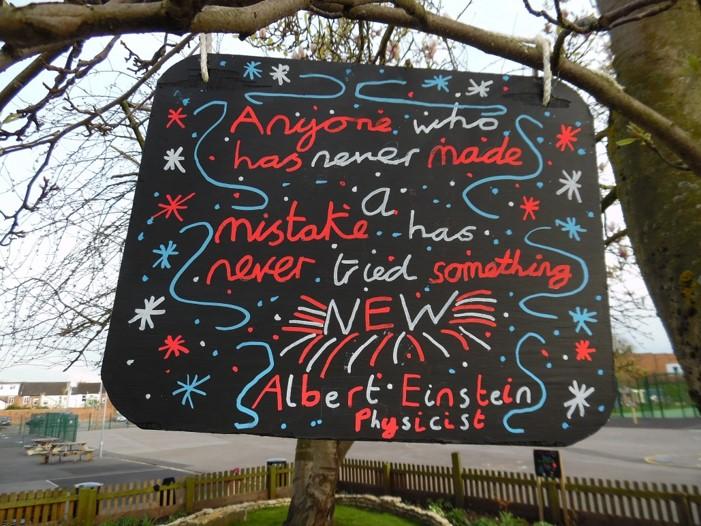 Anyone who
has never made
a
mistake has
never tried something
NEW
Albert Einstein
Physicist